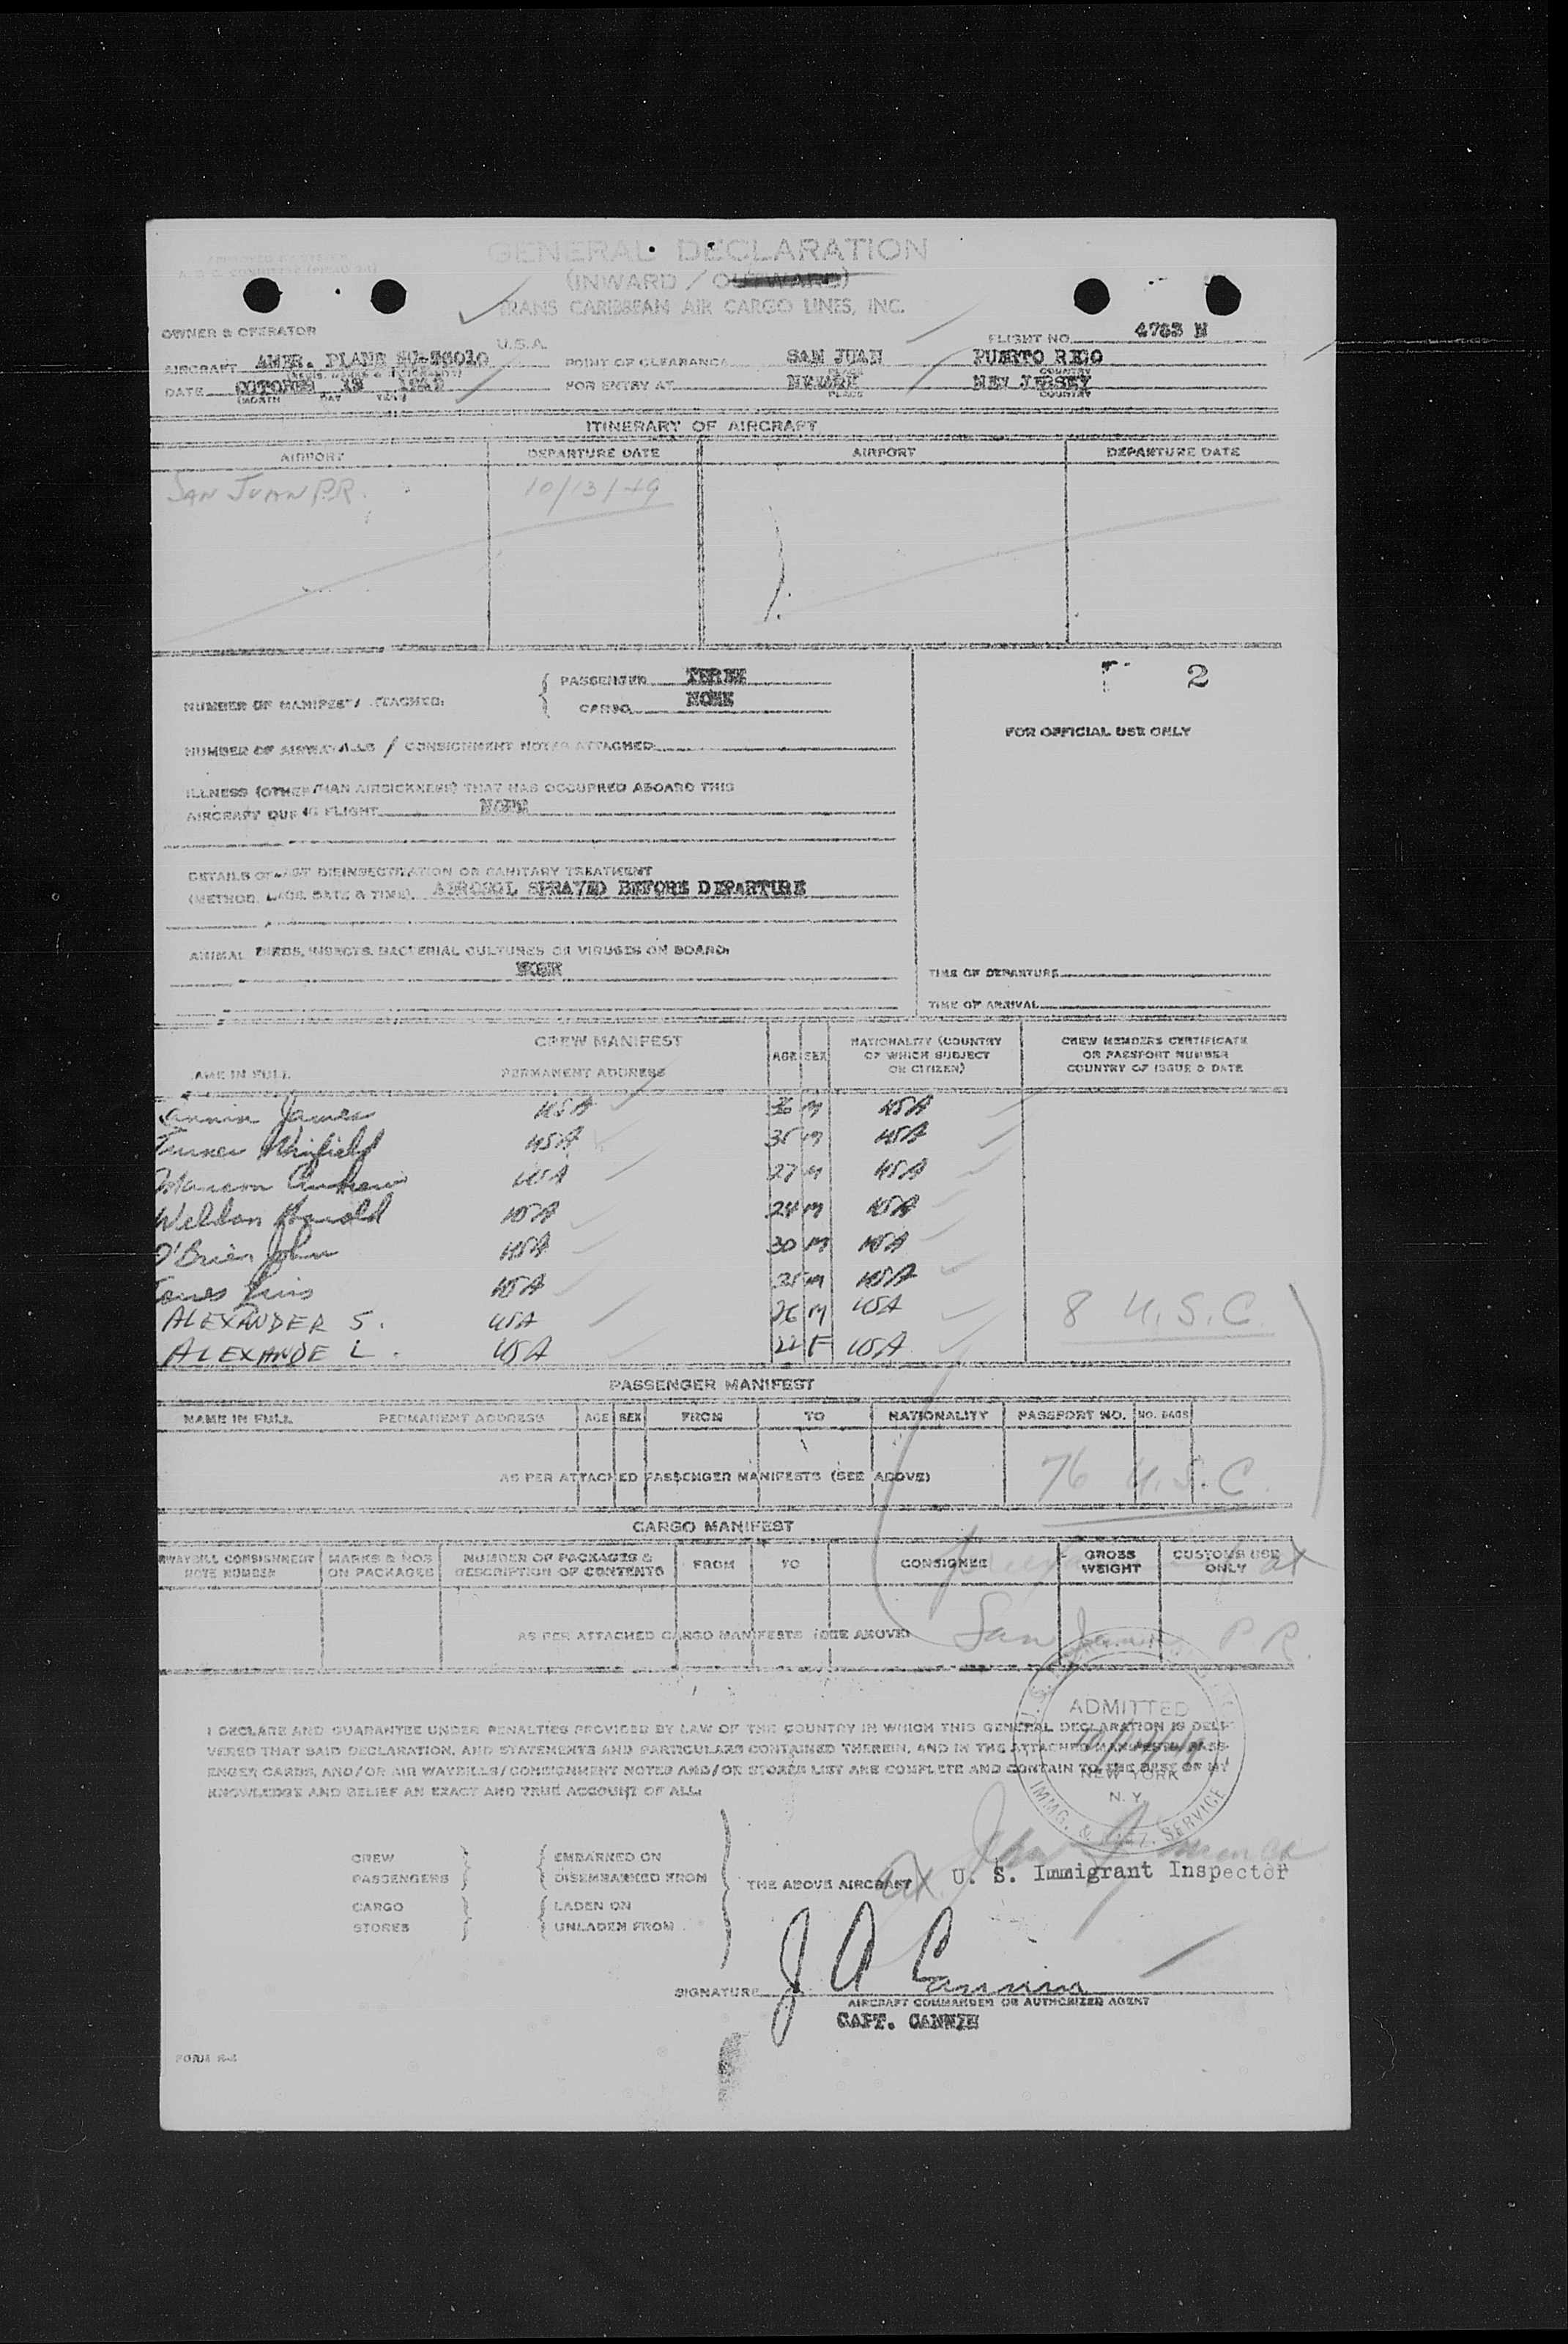 GENERAL DECLARATION
(INWARD / OUTWARD)
TRANS CARIBBEAN AIR CARGO LINES, INC.
OWNER & OPERATOR
U.S.A.
FLIGHT NO. 4763 N
AIRCRAFT AMER. PLANE POINT OF CLEARANCE SAN JUAN PUERTO RICO
DATE OCTOBER 13 FOR ENTRY AT NEWARK NEW JERSEY
(MONTH DAY YEAR) PLACE COUNTRY
ITINERARY OF AIRCRAFT
AIRPORT DEPARTURE DATE AIRPORT DEPARTURE DATE
SAN JUAN P.R. 10/13/49
2
NUMBER OF MANIFESTS ATTACHED: PASSENGER THREE
CARGO NONE
FOR OFFICIAL USE ONLY
NUMBER OF AIRWAYBILLS / CONSIGNMENT NOTES ATTACHED
ILLNESS (OTHER THAN AIRSICKNESS) THAT HAS OCCURRED ABOARD THIS
AIRCRAFT DURING FLIGHT NONE
DETAILS OF LAST DISINSECTIZATION OR SANITARY TREATMENT
(METHOD, PLACE, DATE & TIME). AEROSOL SPRAYED BEFORE DEPARTURE
ANIMAL BIRDS, INSECTS, BACTERIAL CULTURES OR VIRUSES ON BOARD:
NONE
TIME OF DEPARTURE
TIME OF ARRIVAL
CREW MANIFEST
NAME IN FULL PERMANENT ADDRESS AGE SEX NATIONALITY (COUNTRY OF WHICH SUBJECT OR CITIZEN) CREW MEMBERS CERTIFICATE OR PASSPORT NUMBER COUNTRY OF ISSUE & DATE
Cannin James USA 36 M USA
Turner Winfield USA 35 M USA
Andrew USA 27 M USA
Weldon Harold USA 24 M USA
O'Brien John USA 30 M USA
Torres Luis USA 25 M USA
ALEXANDER S. USA 26 M USA 8 U.S.C.
ALEXANDE L. USA 22 F USA
PASSENGER MANIFEST
NAME IN FULL PERMANENT ADDRESS AGE SEX FROM TO NATIONALITY PASSPORT NO. NO. BAGS
AS PER ATTACHED PASSENGER MANIFESTS (SEE ABOVE) 76 U.S.C.
CARGO MANIFEST
AIRWAYBILL CONSIGNMENT NOTE NUMBER MARKS & NOS ON PACKAGES NUMBER OF PACKAGES & DESCRIPTION OF CONTENTS FROM TO CONSIGNEE GROSS WEIGHT CUSTOMS USE ONLY
at
AS PER ATTACHED CARGO MANIFESTS (SEE ABOVE) San Juan P.R.
I DECLARE AND GUARANTEE UNDER PENALTIES PROVIDED BY LAW OF THE COUNTRY IN WHICH THIS GENERAL DECLARATION IS DELI-
VERED THAT SAID DECLARATION, AND STATEMENTS AND PARTICULARS CONTAINED THEREIN, AND IN THE ATTACHED MANIFESTS, PASS-
ENGER CARDS, AND/OR AIR WAYBILLS/CONSIGNMENT NOTES AND/OR STORES LIST ARE COMPLETE AND CONTAIN TO THE BEST OF MY
KNOWLEDGE AND BELIEF AN EXACT AND TRUE ACCOUNT OF ALL:
ADMITTED
NEW YORK
N. Y.
IMMG. & NAT. SERVICE
CREW EMBARKED ON
PASSENGERS DISEMBARKED FROM
THE ABOVE AIRCRAFT
U. S. Immigrant Inspector
CARGO LADEN ON
STORES UNLADEN FROM
SIGNATURE J A Cannin
AIRCRAFT COMMANDER OR AUTHORIZED AGENT
CAPT. CANNIN